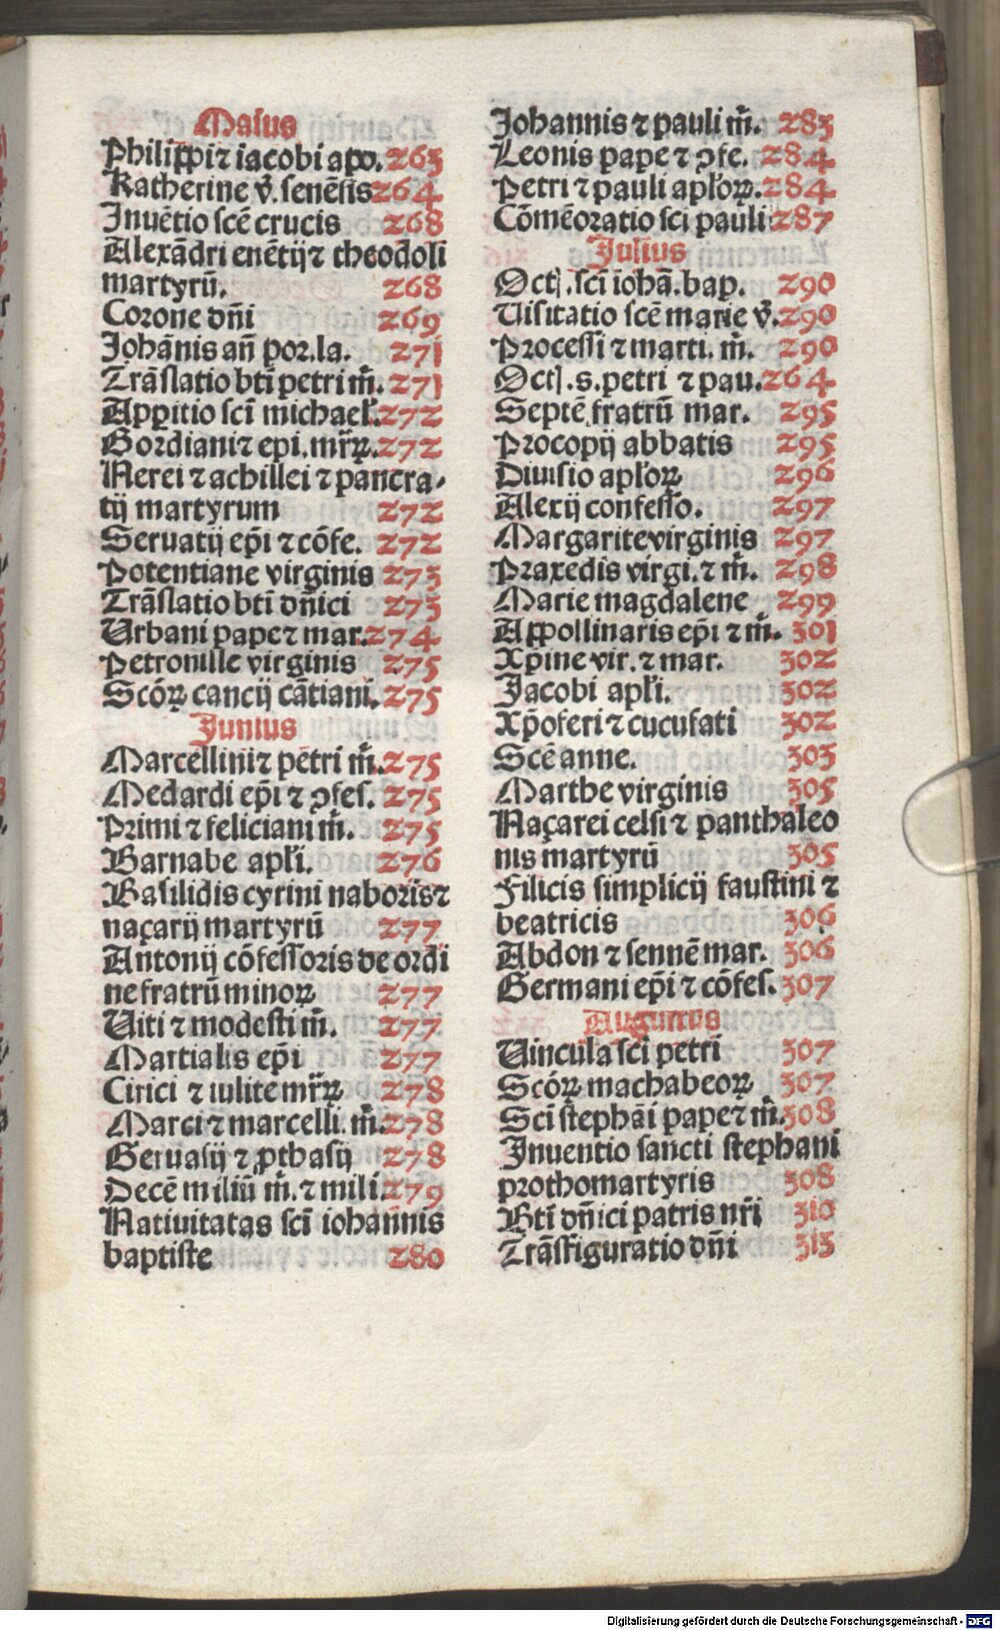 Maius
Philippi ⁊ iacobi apo. 263
Katherine v̄. senēsis 264
Inuētio scē crucis 268
Alexādri euētij ⁊ theodoli
martyrū. 268
Corone dn̄i 269
Johānis an̄ por. la. 271
Trāslatio bti petri m̄. 271
Appitio sci michael'. 272
Gordiani ⁊ epi. mr̄ꝝ. 272
Nerei ⁊ achillei ⁊ pancra-
tij martyrum 272
Seruatij ep̄i ⁊ cōfe. 272
Potentiane virginis 273
Trāslatio bti dn̄ici 273
Urbani pape ⁊ mar. 274
Petronille virginis 275
Scōꝝ cancij cātiani. 275
Junius
Marcellini ⁊ petri m̄. 275
Medardi ep̄i ⁊ ꝯfes. 275
Primi ⁊ feliciani m̄. 275
Barnabe apl'i. 276
Basilidis cyrini naboris ⁊
naçarij martyrū 277
Antonij cōfessoris de ordi
ne fratrū minoꝝ 277
Uiti ⁊ modesti m̄. 277
Martialis ep̄i 277
Cirici ⁊ iulite mr̄ꝝ 278
Marci ⁊ marcelli. m̄. 278
Geruasij ⁊ ꝓthasij 278
Decē miliū m̄. ⁊ mili. 279
Natiuitatas sci iohannis
baptiste 280
Johannis ⁊ pauli m̄. 283
Leonis pape ⁊ ꝯfe. 284
Petri ⁊ pauli apl'oꝝ. 284
Cōmēoratio sci pauli 287
Julius
Oct. sci iohā. bap. 290
Uisitatio scē marie v̄. 290
Processi ⁊ marti. m̄. 290
Oct. s. petri ⁊ pau. 264
Septē fratrū mar. 295
Procopij abbatis 295
Diuisio apl'oꝝ 296
Alexij confesso. 297
Margarite virginis 297
Praxedis virgi. ⁊ m̄. 298
Marie magdalene 299
Appollinaris ep̄i ⁊ m̄. 301
Xp̄ine vir. ⁊ mar. 302
Jacobi apl'i. 302
Xp̄oferi ⁊ cucufati 302
Scē anne. 303
Marthe virginis 305
Naçarei celsi ⁊ panthaleo
nis martyrū 305
Filicis simplicij faustini ⁊
beatricis 306
Abdon ⁊ sennē mar. 306
Germani ep̄i ⁊ cōfes. 307
Augustus
Uincula sci petri 307
Scōꝝ machabeoꝝ 307
Sci stephāi pape ⁊ m̄. 308
Inuentio sancti stephani
prothomartyris 308
Bti dn̄ici patris nr̄i 310
Trāsfiguratio dn̄i 313
Digitalisierung gefördert durch die Deutsche Forschungsgemeinschaft - DFG